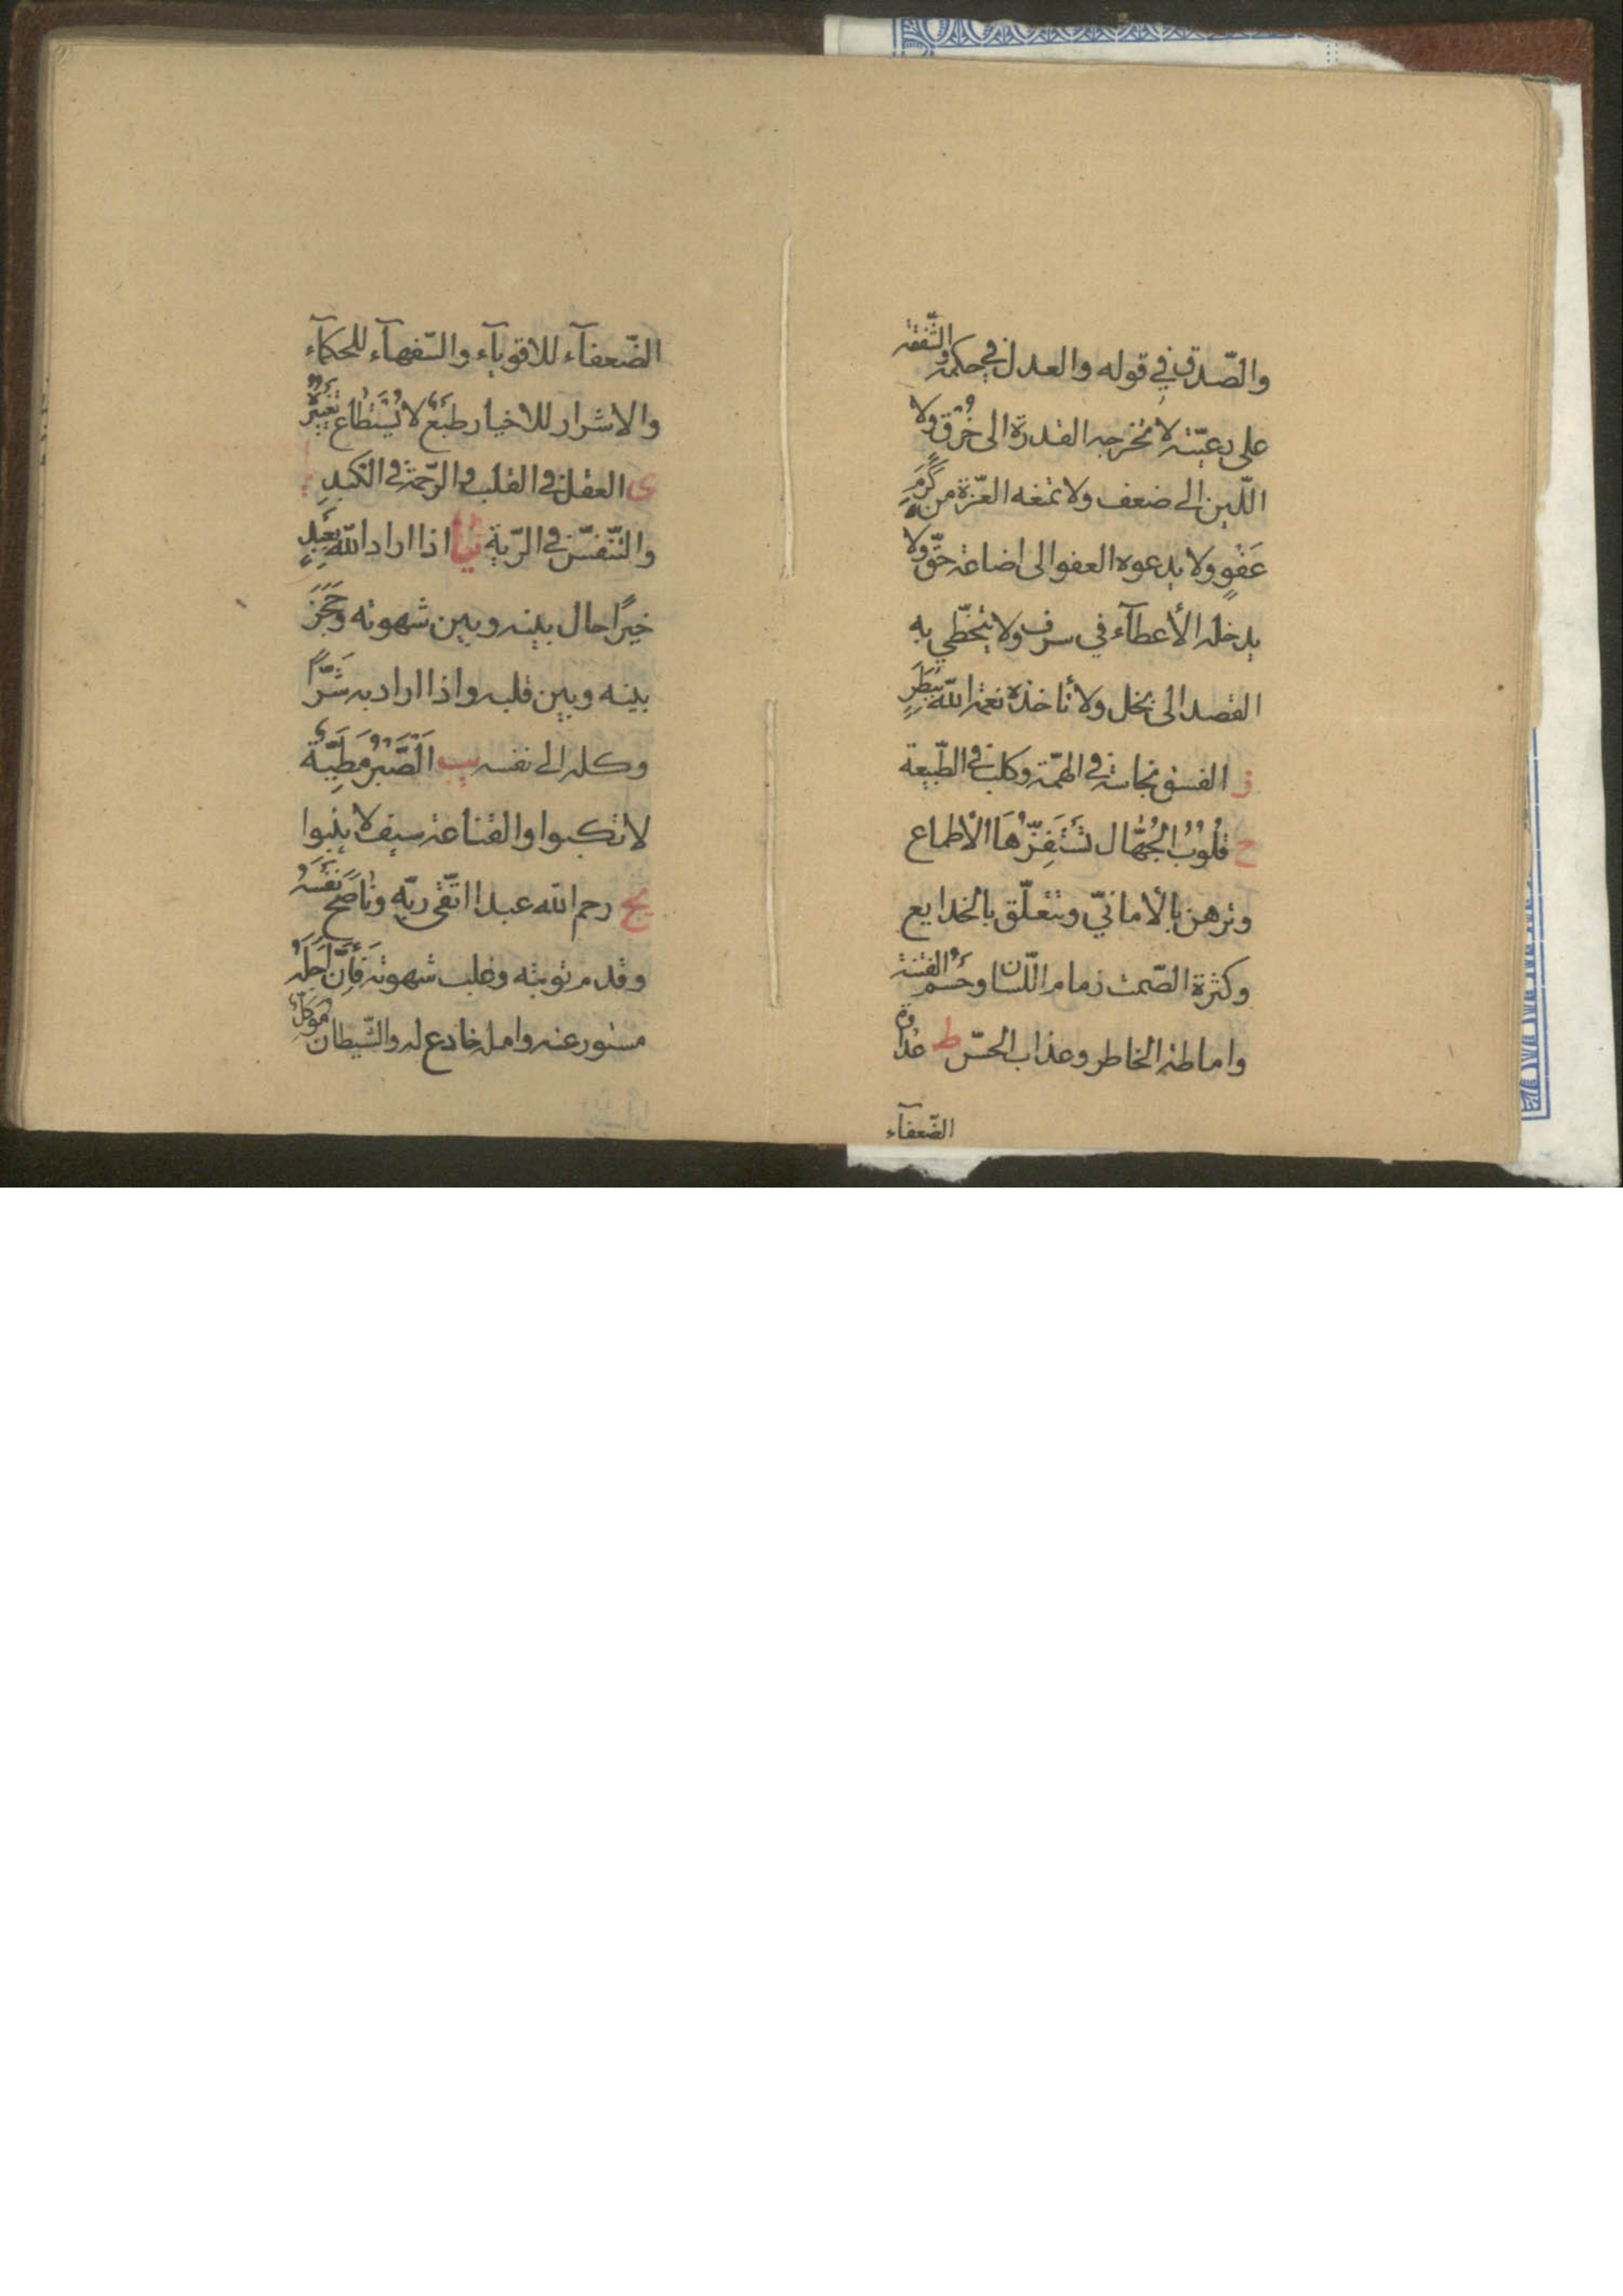 والصّدق في قوله والعدل في حكمه والشّفقة
على رعيّته لا تخرجه القدرة الى خُرْقٍ ولا
اللّين الى ضعف ولا تمنعه العزّة من كَرَمِ
عَفْوٍ ولا يدعوه العفو الى اضاعة حقّ ولا
يدخله الأعطآء في سرف ولا يتخطّي به
القصد الى بخل ولا تاخذه نعم الله ببَطَرٍ
ز الفسق نجاسة في الهمّة وكلب في الطّبيعة
ح قُلُوبُ الجُهّال تَسْتَفِزُّهَا الأطماع
وترهن بالأمانيّ وتتعلّق بالخدايع
وكثرة الصّمت زمام اللّسان وحَسْمُ الفتنة
واماطة الخاطر وعذاب الحسّ ط عداوة
الضّعفآء
الضّعفآء للاقويآء والسّفهآء للحكمآء
والاشرار للاخيار طَبْعٌ لا يُسْتَطاع تَغْيِيرُهُ
ى العقل في القلب والرّحمة في الكَبِدِ
والتّنفّس في الرّية يا اذا اراد الله بِعَبْدٍ
خيرًا حال بينه وبين شهوته وحَجَزَ
بينه وبين قلبه واذا اراد به شَرًّا
وكله الى نفسه يب اَلصَّبْرُ مَطِيَّةٌ
لا تكبوا والقناعة سيف لا ينبوا
يج رحم الله عبدا اتّقى ربّه وناصَحَ نَفْسَهُ
وقدم توبته وغلب شهوته فَاِنَّ اَجَلَهُ
مستور عنه وامله خادع له والشّيطان مُوَكَّلٌ